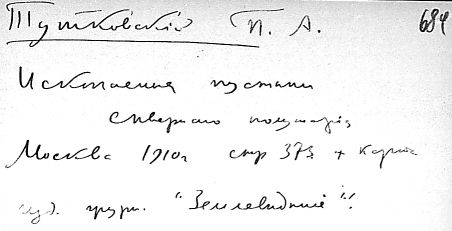 Тутковскій П. А. 684
Ископаемыя пустыни
сѣвернаго полушарія
Москва 1910г стр 373 + карта
изд. журн. "Землевѣдѣніе".